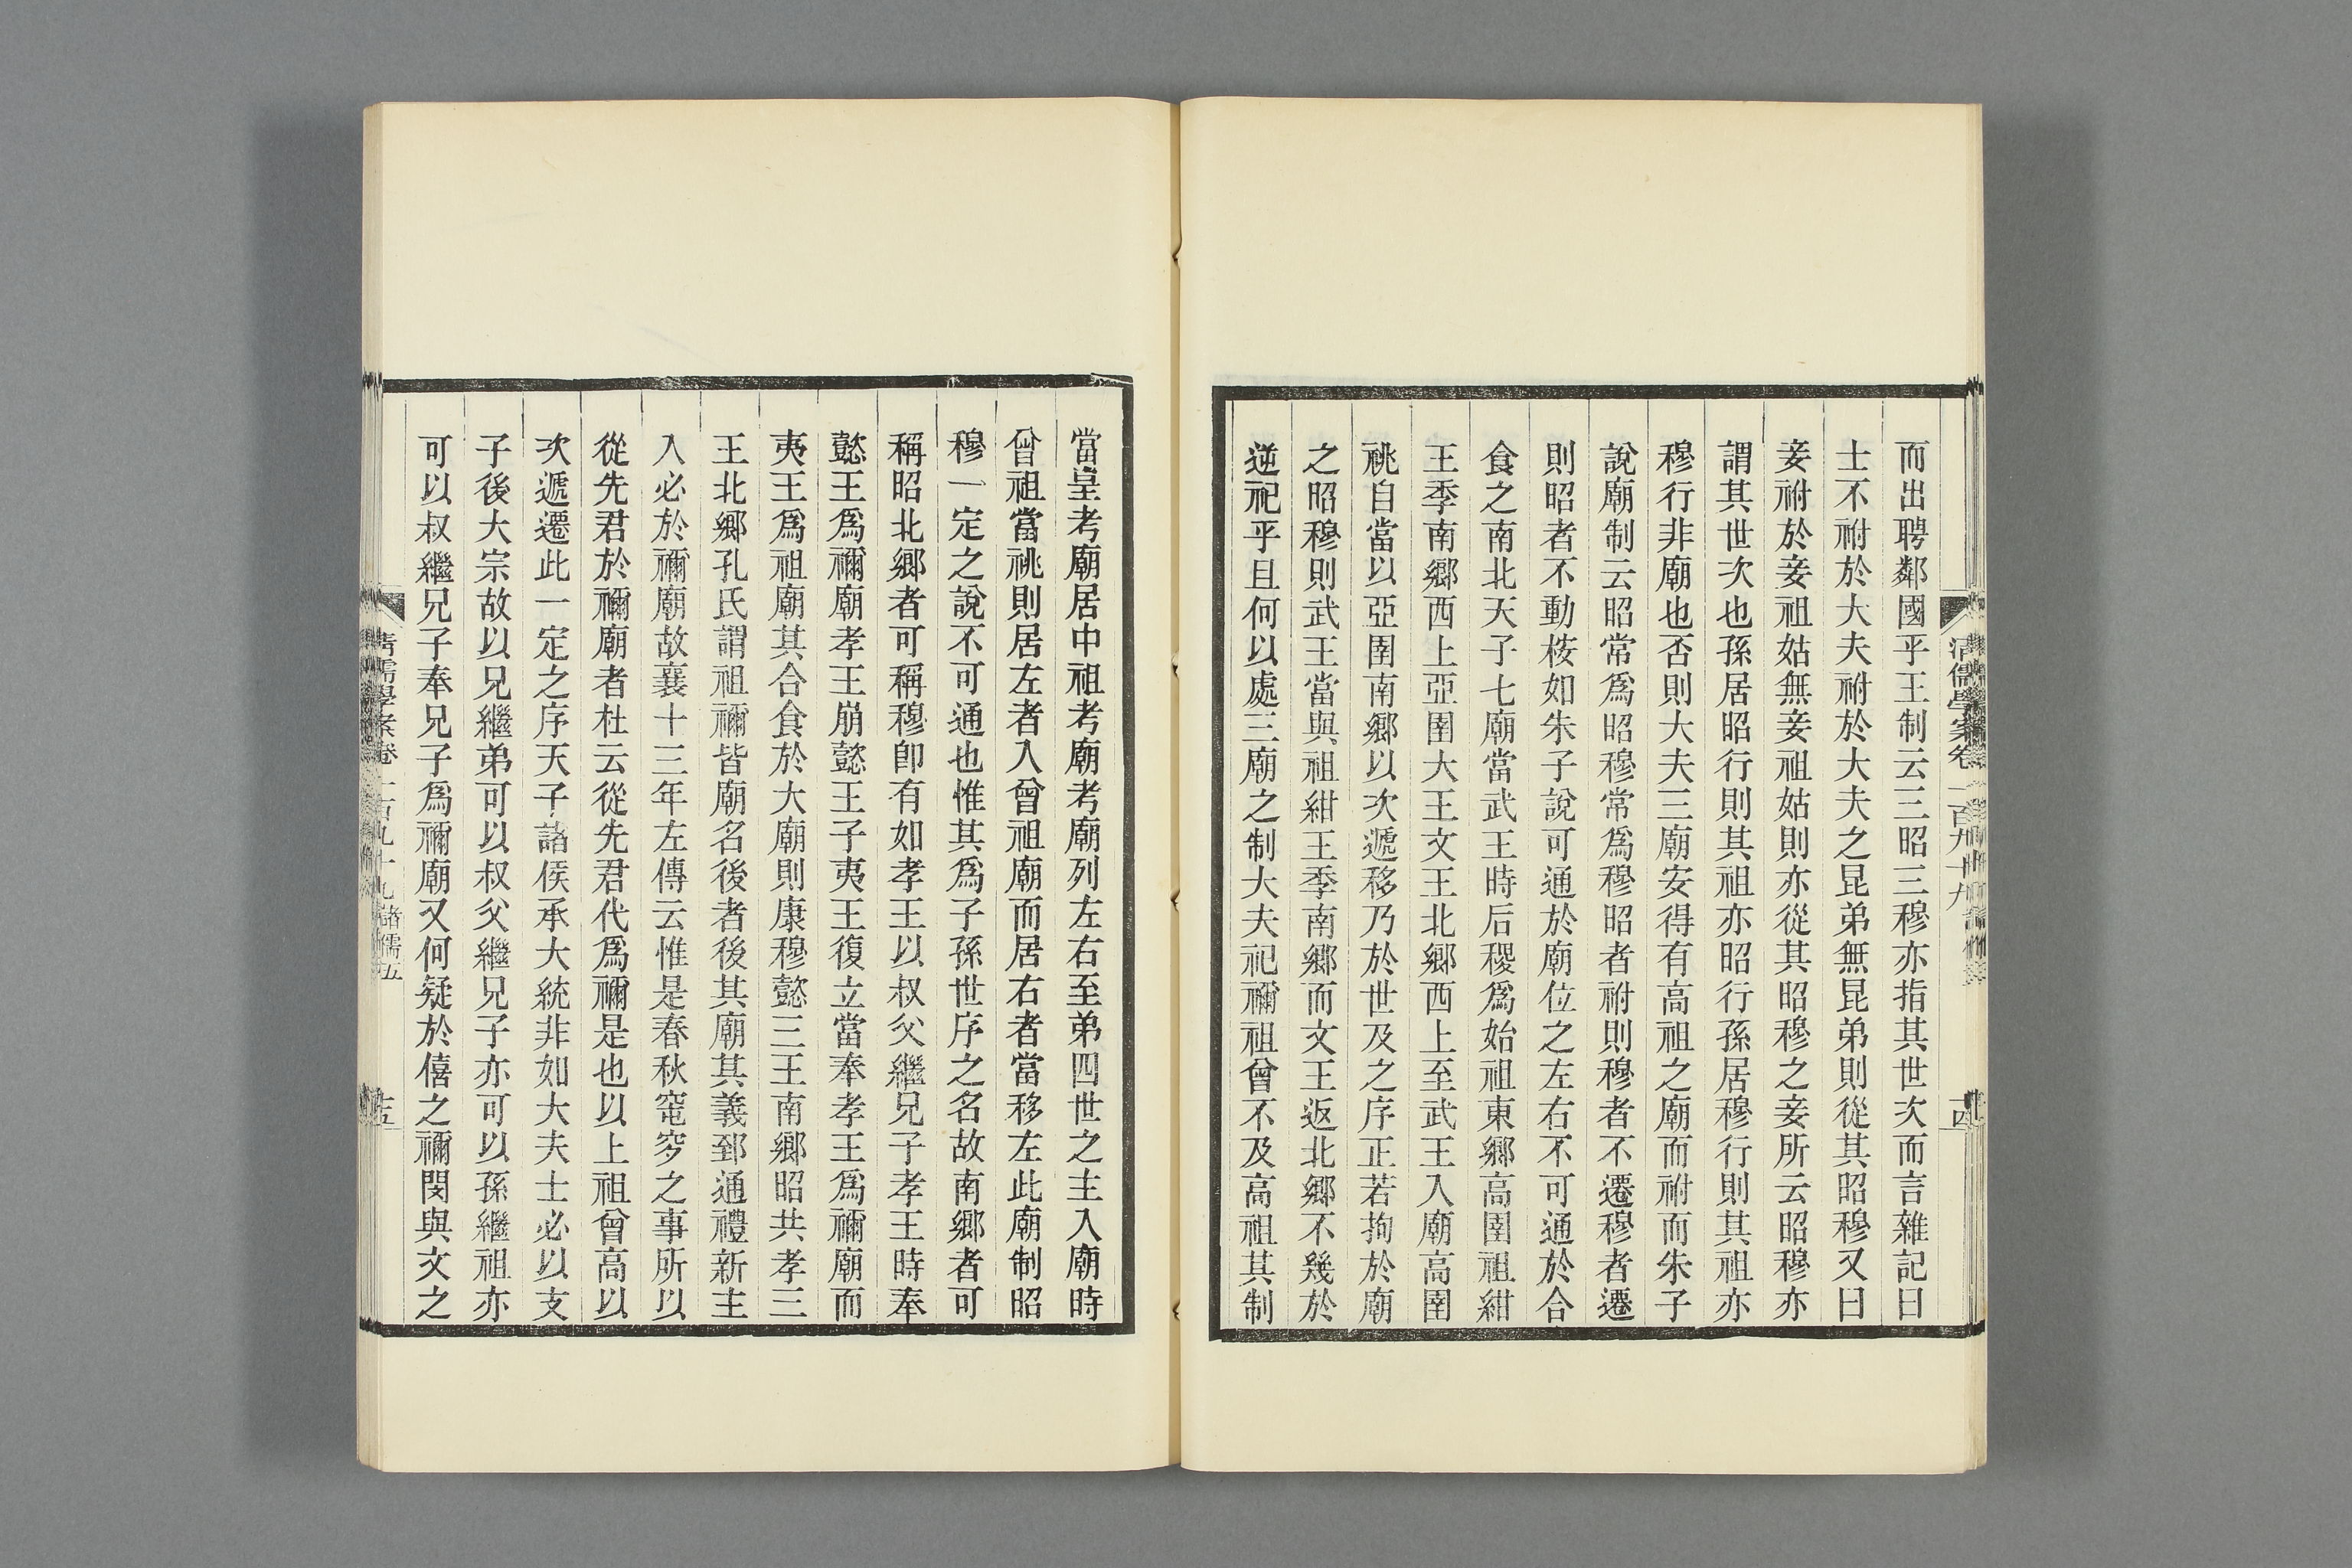 而出聘鄰國乎王制云三昭三穆亦指其世次而言雜記曰
士不祔於大夫祔於大夫之昆弟無昆弟則從其昭穆又曰
妾祔於妾祖姑無妾祖姑則亦從其昭穆之妾所云昭穆亦
謂其世次也孫居昭行則其祖亦昭行孫居穆行則其祖亦
穆行非廟也否則大夫三廟安得有高祖之廟而祔而朱子
說廟制云昭常爲昭穆常爲穆昭者祔則穆者不遷穆者遷
則昭者不動桉如朱子說可通於廟位之左右不可通於合
食之南北天子七廟當武王時后稷爲始祖東鄉高圉祖紺
王季南鄉西上亞圉大王文王北鄉西上至武王入廟高圉
祧自當以亞圉南鄉以次遞移乃於世及之序正若拘於廟
之昭穆則武王當與祖紺王季南鄉而文王返北鄉不幾於
逆祀乎且何以處三廟之制大夫祀禰祖曾不及高祖其制
當皇考廟居中祖考廟考廟列左右至弟四世之主入廟時
曾祖當祧則居左者入曾祖廟而居右者當移左此廟制昭
穆一定之說不可通也惟其爲子孫世序之名故南鄉者可
稱昭北鄉者可稱穆卽有如孝王以叔父繼兄子孝王時奉
懿王爲禰廟孝王崩懿王子夷王復立當奉孝王爲禰廟而
夷王爲祖廟其合食於大廟則康穆懿三王南鄉昭共孝三
王北鄉孔氏謂祖禰皆廟名後者後其廟其義郅通禮新主
入必於禰廟故襄十三年左傳云惟是春秋窀穸之事所以
從先君於禰廟者杜云從先君代爲禰是也以上祖曾高以
次遞遷此一定之序天子諸侯承大統非如大夫士必以支
子後大宗故以兄繼弟可以叔父繼兄子亦可以孫繼祖亦
可以叔繼兄子奉兄子爲禰廟又何疑於僖之禰閔與文之
清儒學案卷一百九十九
十四
清儒學案卷一百九十九 諸儒五
十五